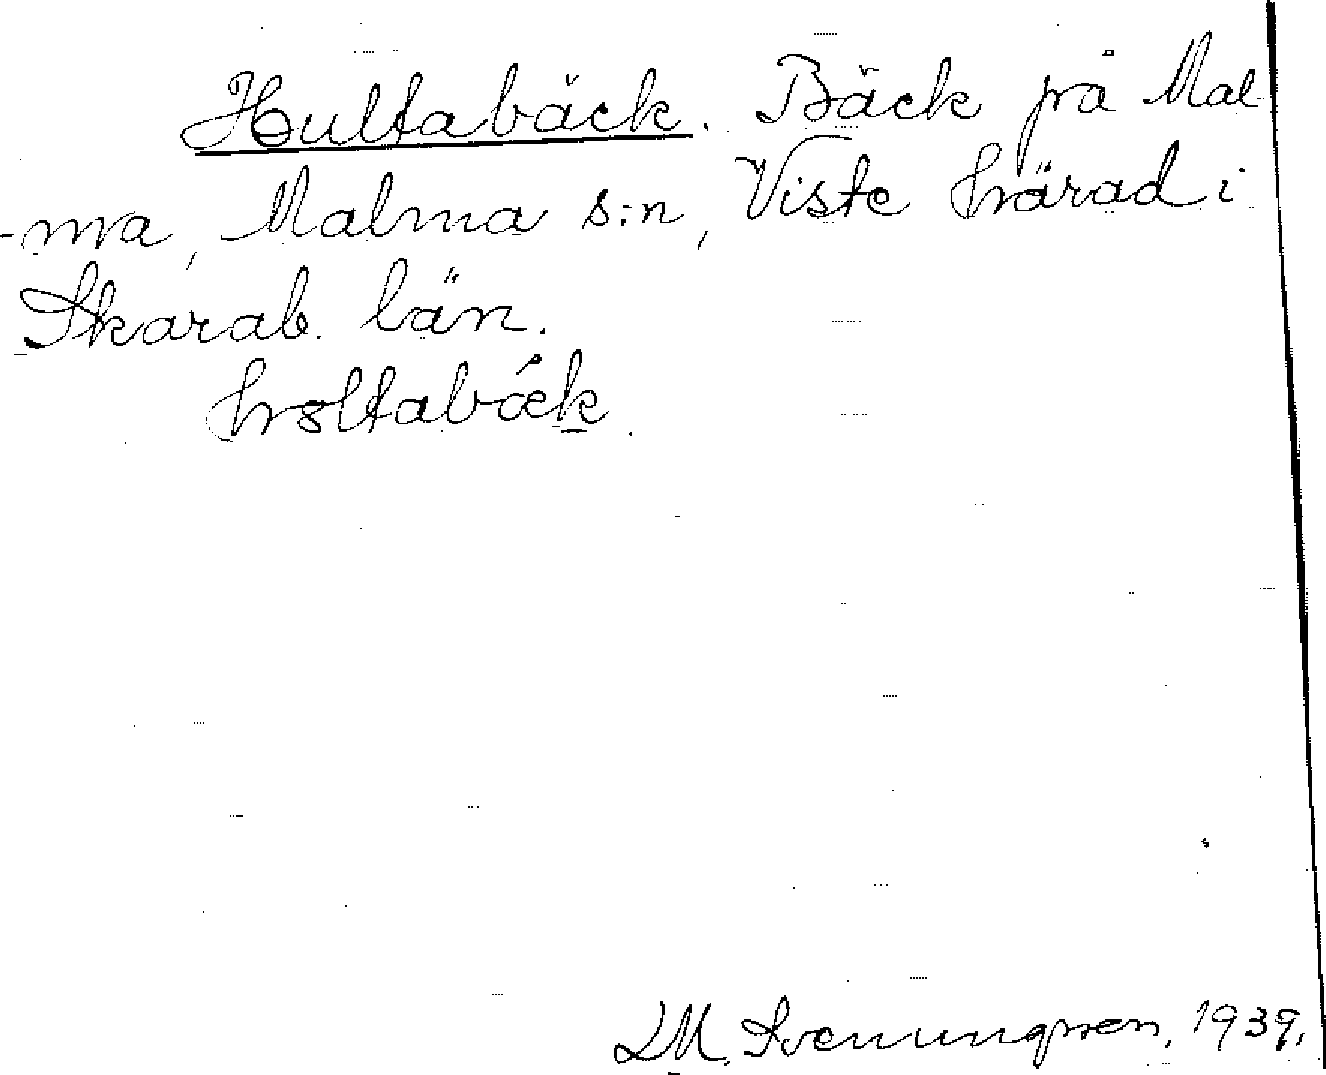 Hultabäck. Bäck på Mal
-ma, Malma s:n, Viste härad i
Skarab. län.
L M. Svenungsson, 1939.